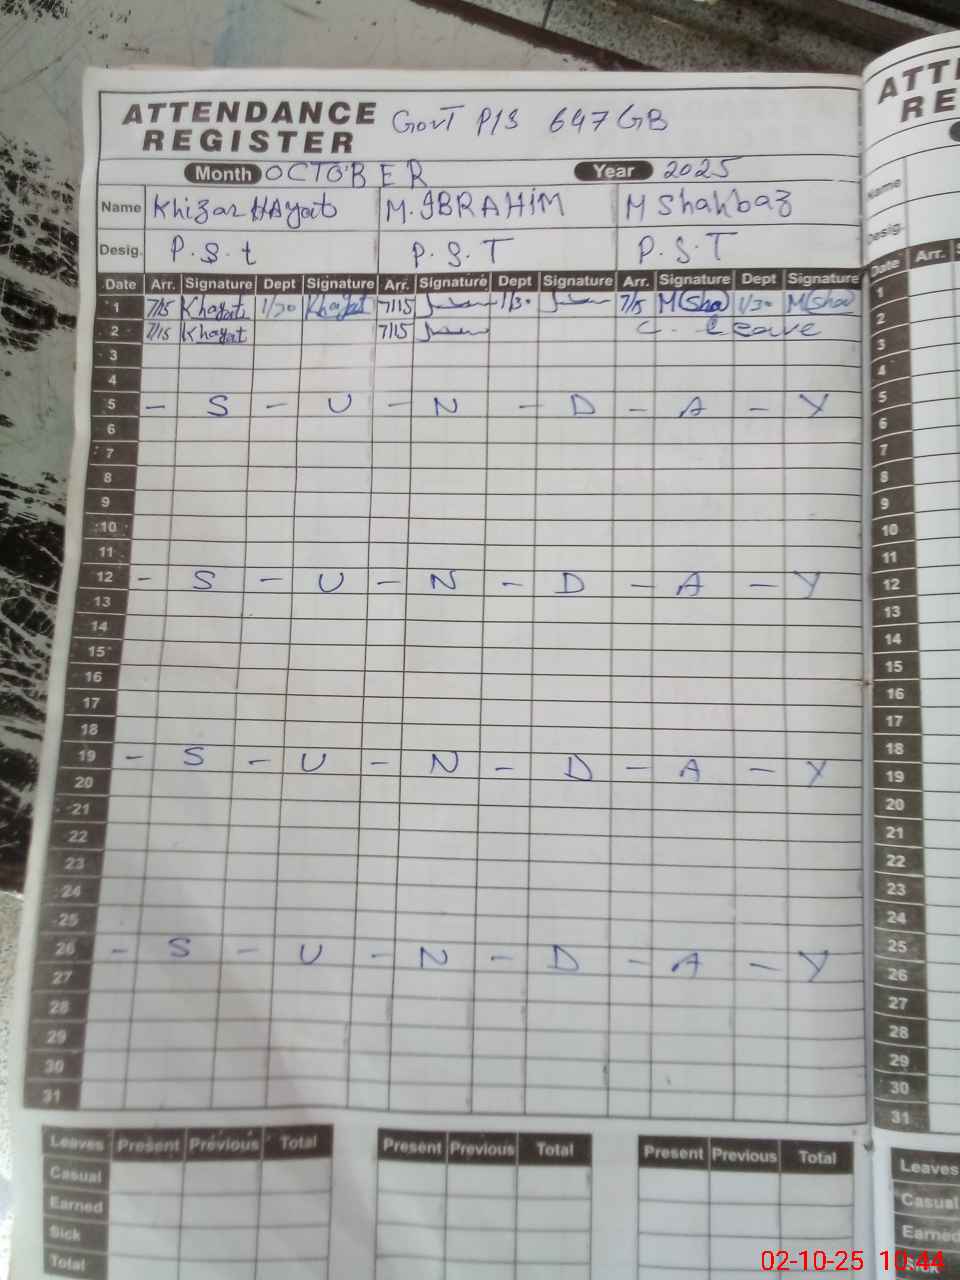 ATTENDANCE REGISTER GovT P/S 647 GB
Month OCTOBER Year 2025
Name Khizar HAyat M.IBRAHIM M Shahbaz
Desig. P.S.t P.S.T P.S.T
Date Arr. Signature Dept Signature Arr. Signature Dept Signature Arr. Signature Dept Signature
1 7/15 Khayat 1/30 Khayat 7/15 1/30 7/15 M(Sha) 1/30 M(Sha)
2 7/15 Khayat 7/15 C. Leave
3
4
5 - S - U - N - D - A - Y
6
7
8
9
10
11
12 - S - U - N - D - A - Y
13
14
15
16
17
18
19 - S - U - N - D - A - Y
20
21
22
23
24
25
26 - S - U - N - D - A - Y
27
28
29
30
31
Leaves Present Previous Total Present Previous Total Present Previous Total
Casual
Earned
Sick
Total
ATT
RE
Name
Desig.
Date Arr. S
1
2
3
4
5
6
7
8
9
10
11
12
13
14
15
16
17
18
19
20
21
22
23
24
25
26
27
28
29
30
31
Leaves
Casual
Earned
Sick
02-10-25 10:44